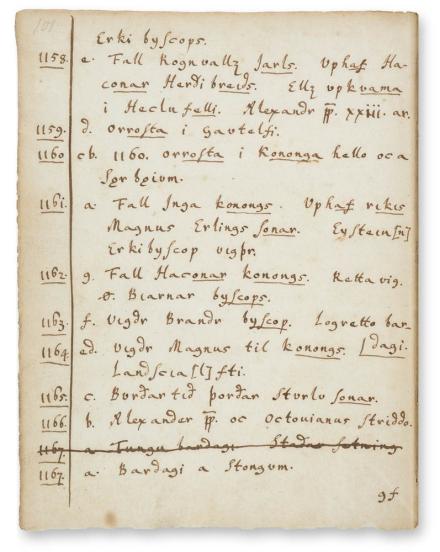 101
Erki byscops.
1158. e. Fall Rognvallz Jarls. Uphaf Ha-
conar Herdi breids. Ellz vpkvama
i Heclu felli. Alexandr pp. xxiii. ar.
1159. d. Orrosta i Gavtelfi.
1160 cb. 1160. Orrosta i Kononga hello oc a
Sørbøium.
1161. a. Fall Inga konongs. Uphaf rikis
Magnus Erlings sonar. Eystein[n]
Erkibyscop vigþr.
1162. g. Fall Haconar konongs. Retta vig.
Biarnar byscops.
1163. f. Vigdr Brandr byscop. Logretto bar-
1164. ed. vigdr Magnus til konongs. [dagi.
Landscia[l]fti.
1165. c. Burðar tid þorðar Sturlu sonar.
1166. b. Alexander pp. oc Octouianus striddo.
1167. a Tungu bardagi Stadar setning
1167. a. Bardagi a Stongum.
gf